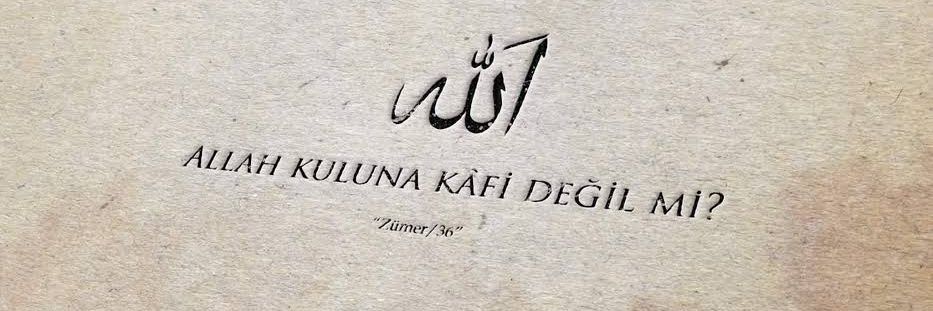 الله
ALLAH KULUNA KÂFİ DEĞİL Mİ?
"Zümer/36"